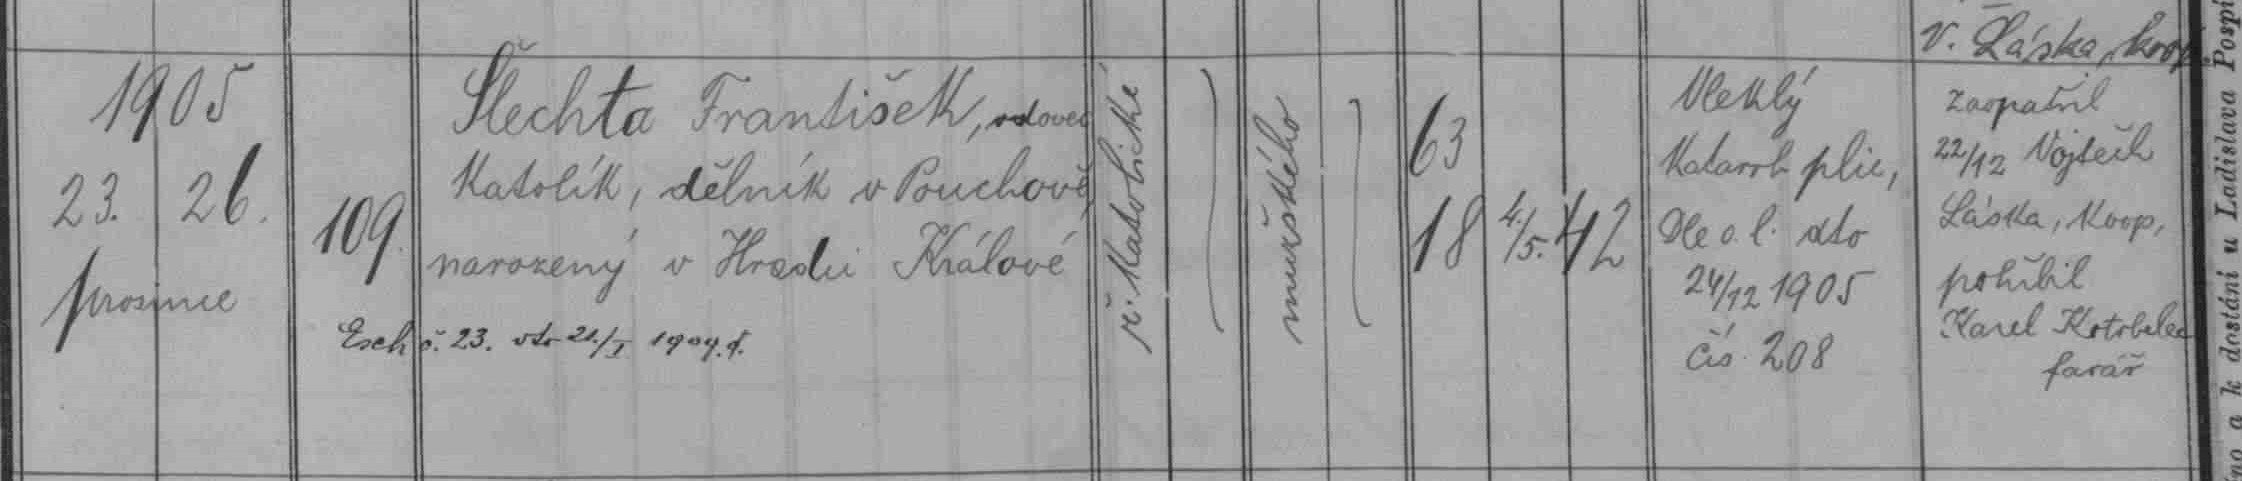 V. Láska, koop
1905
23. 26.
prosince
109.
Šlechta František, vdovec
katolík, dělník v Pouchově,
narozený v Hradci Králové
Esch č. 23. dto 21./I 1909.
ř. katolické
mužského
63
18 4./5. 42
Vleklý
katarrh plic,
Dle o. l. dto
24/12 1905
čís. 208
zaopatřil
22/12 Vojtěch
Láska, koop,
pohřbil
Karel Kotrbelec
farář
a k dostání u Ladislava Pospí